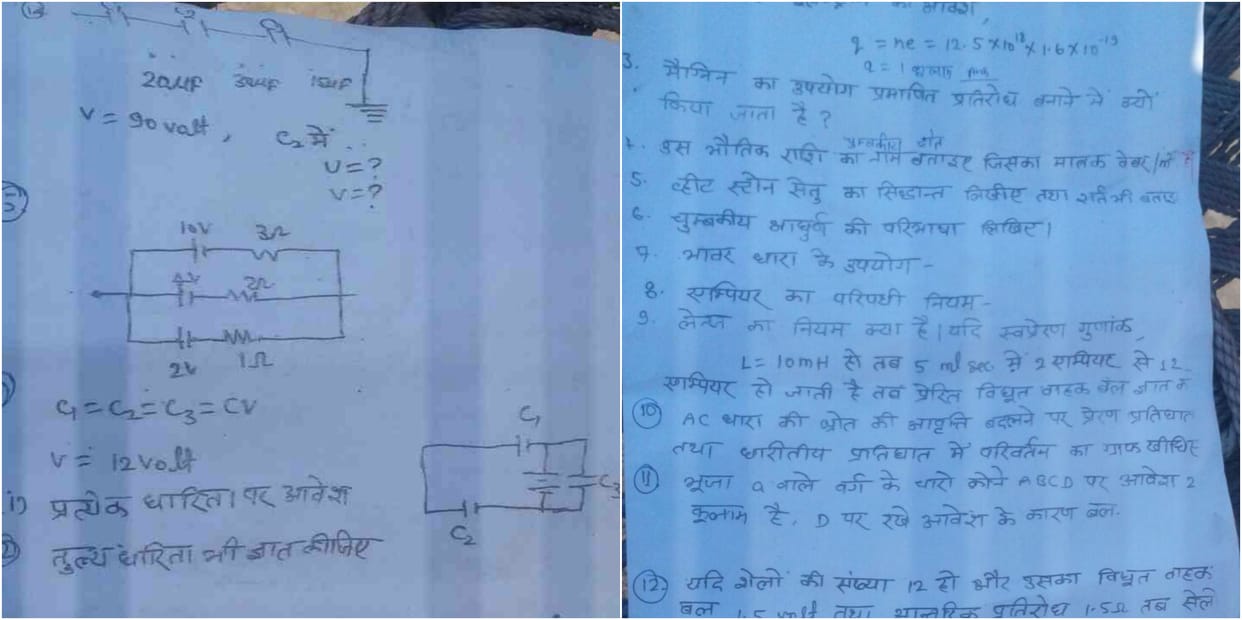 C₂
20μF 30μF 15μF
V = 90 volt, C₂ में
U = ?
V = ?
10V 3Ω
4V 2Ω
2V 1Ω
C₁ = C₂ = C₃ = CV
V = 12 volt
i) प्रत्येक धारिता पर आवेश
तुल्य धारिता भी ज्ञात कीजिए
C₁
C₃
C₂
q = ne = 12.5×10¹⁸×1.6×10⁻¹⁹
3. मैग्निन का उपयोग प्रमाणित प्रतिरोध बनाने में क्यों
किया जाता है ?
उस भौतिक राशि का नाम बताइए जिसका मात्रक वेबर/m² है
5. व्हीट स्टोन सेतु का सिद्धान्त लिखीए तथा शर्त भी बताए
6. चुम्बकीय आघुर्ण की परिभाषा लिखिए।
7. भावर धारा के उपयोग -
8. एम्पियर का परिपथी नियम -
9. लेन्ज का नियम क्या है। यदि स्वप्रेरण गुणांक
L = 10mH हो तब 5 ml sec में 2 एम्पियर से 12
एम्पियर हो जाती है तब प्रेरित विधुत वाहक बल ज्ञात क
10 AC धारा की श्रोत की आवृत्ति बदलने पर प्रेरण प्रतिघात
तथा धारीतीय प्रतिघात में परिवर्तन का ग्राफ खीचिए
11 भूजा a वाले वर्ग के चारो कोने ABCD पर आवेश 2
कूलाम है, D पर रखे आवेश के कारण बल.
12. यदि शेलों की संख्या 12 हो और उसका विधुत वाहक
बल 1.5 volt तथा आन्तरिक प्रतिरोध 1.5Ω तब सेलो